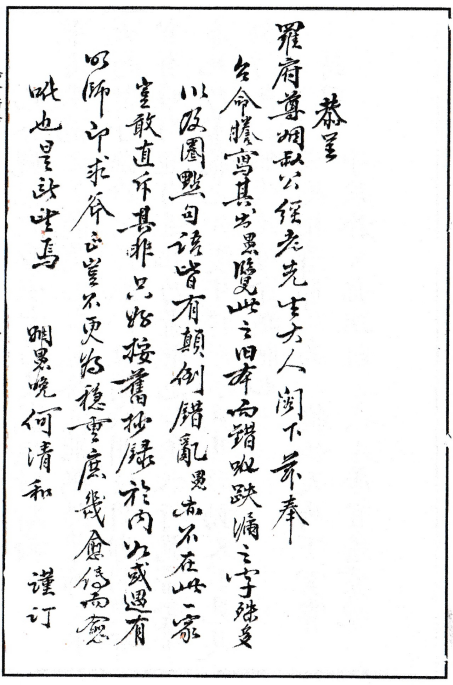 恭呈
羅府尊姻叔公經老先生大人閣下茲奉
台命謄寫其書愚覽此之旧本而錯訛跌漏之字殊多
以及圈點句語皆有顛倒錯亂愚亦不在此一家
豈敢直斥其非只好按舊抄錄於內如或遇有
明師即求斧正豈不更為穩重庶幾愈傳而愈
吡也是所望焉
姻愚晚何清和 謹訂